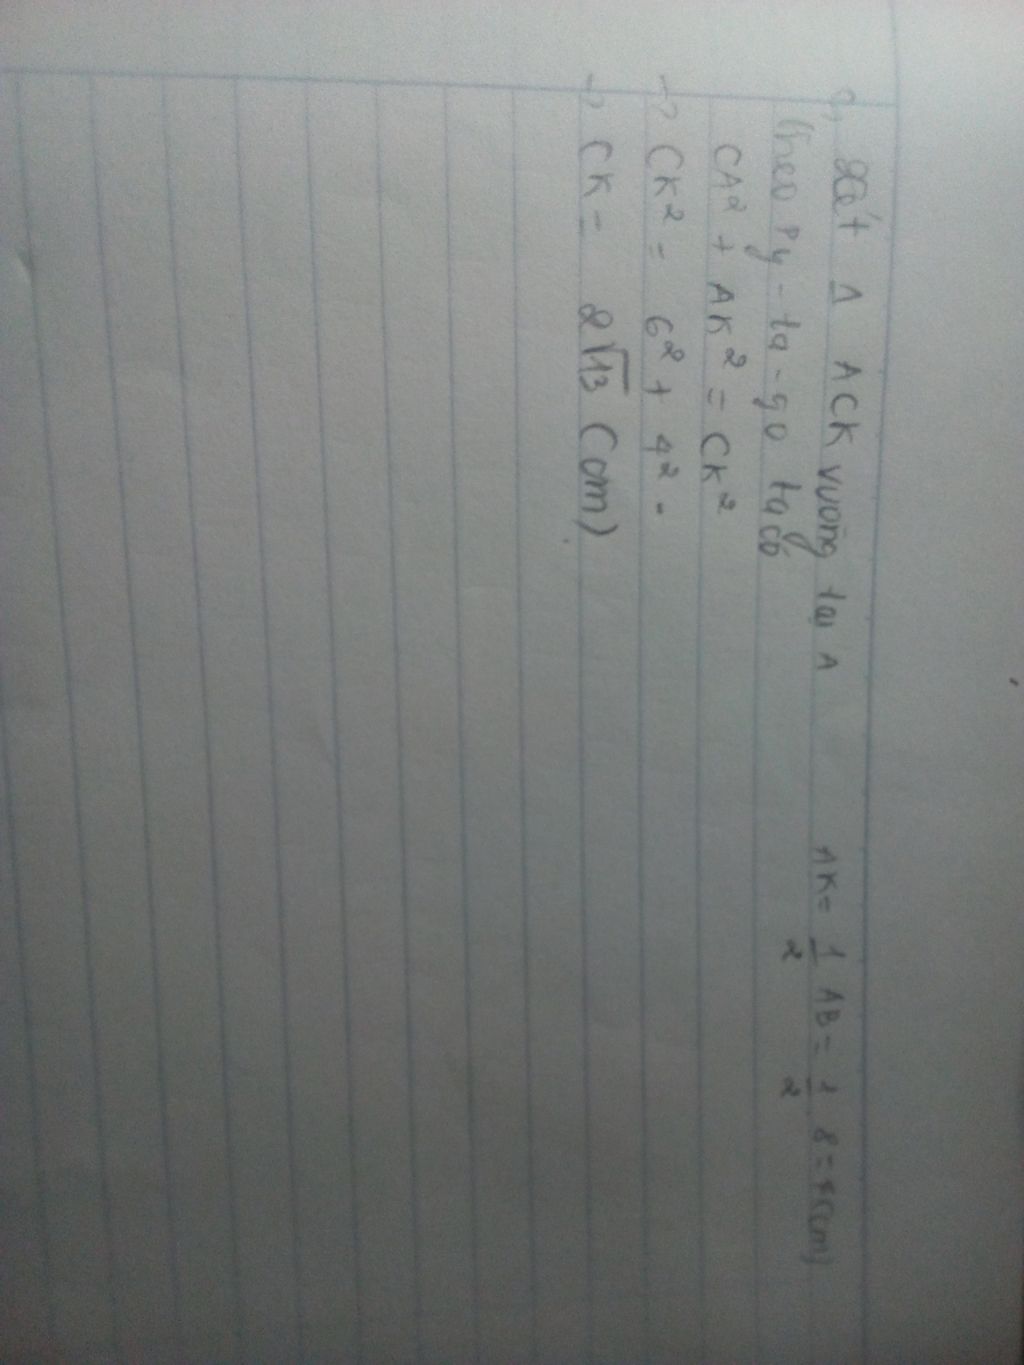 c, Xét Δ ACK vuông tại A
AK = 1/2 AB = 1/2 8 = 4(cm)
Theo Py-ta-go ta có
CA² + AK² = CK²
=> CK² = 6² + 4² =
=> CK = 2√13 (cm)